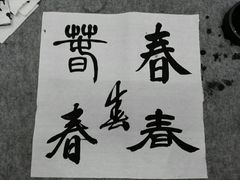 春
春
春
萅
春